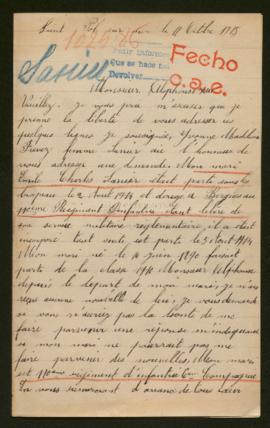 Saint Pol sur mer le 11 Octobre 1915
Para informe
Que se hace del
Devolver
Fecho
C.a.e.
Monsieur Alphonse
Veuillez je vous prie m'excuser que je
prenne la liberté de vous adresser ces
quelques lignes je soussignée, Yvonne Madeleine
femme Sansie ai l'honneur de
vous adresser une demande Mon mari
Emile Charles Sansie était parti sous les
drapeaux le 2 Août 1914 et dirigé à Bergues au
110ème Régiment d'infanterie étant libéré de
son service militaire réglementaire, il a était
incorporé tout suite, est parti le 5 Août 1914
Mon mari né le 14 juin 1890 faisait
partie de la classe 1910 Monsieur Alphonse
depuis le départ de mon mari, je n'ai
reçue aucune nouvelle de lui, je vous demande
si vous n'auriez pas la bonté de me
faire parvenir une réponse m'indiquant
si mon mari ne pourrait pas me
faire parvenir des nouvelles, Mon mari
est 110ème régiment d'infanterie 6me Compagnie
En vous remerciant d'avance de tout cœur